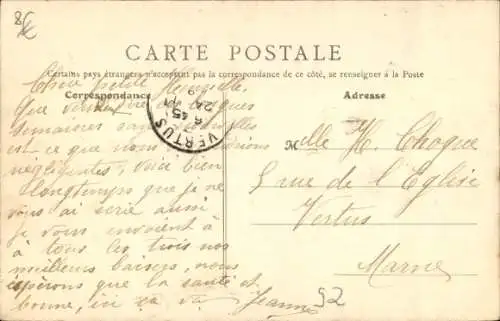 8€
CARTE POSTALE
Certains pays étrangers n'acceptent pas la correspondance de ce côté, se renseigner à la Poste
Correspondance
Adresse
Chère petite
Que
semaines sans nouvelles
est ce que nous serions
négligentes, voici bien
longtemps que je ne
vous ai écrie aussi
je vous envoient à
à tous les trois nos
meilleurs baisers, nous
espérons que la santé est
bonne, ici ça va Jeanne
VERTUS
6 45
24
Melle H. Choque
5 rue de l'Eglise
Vertus
Marne
52